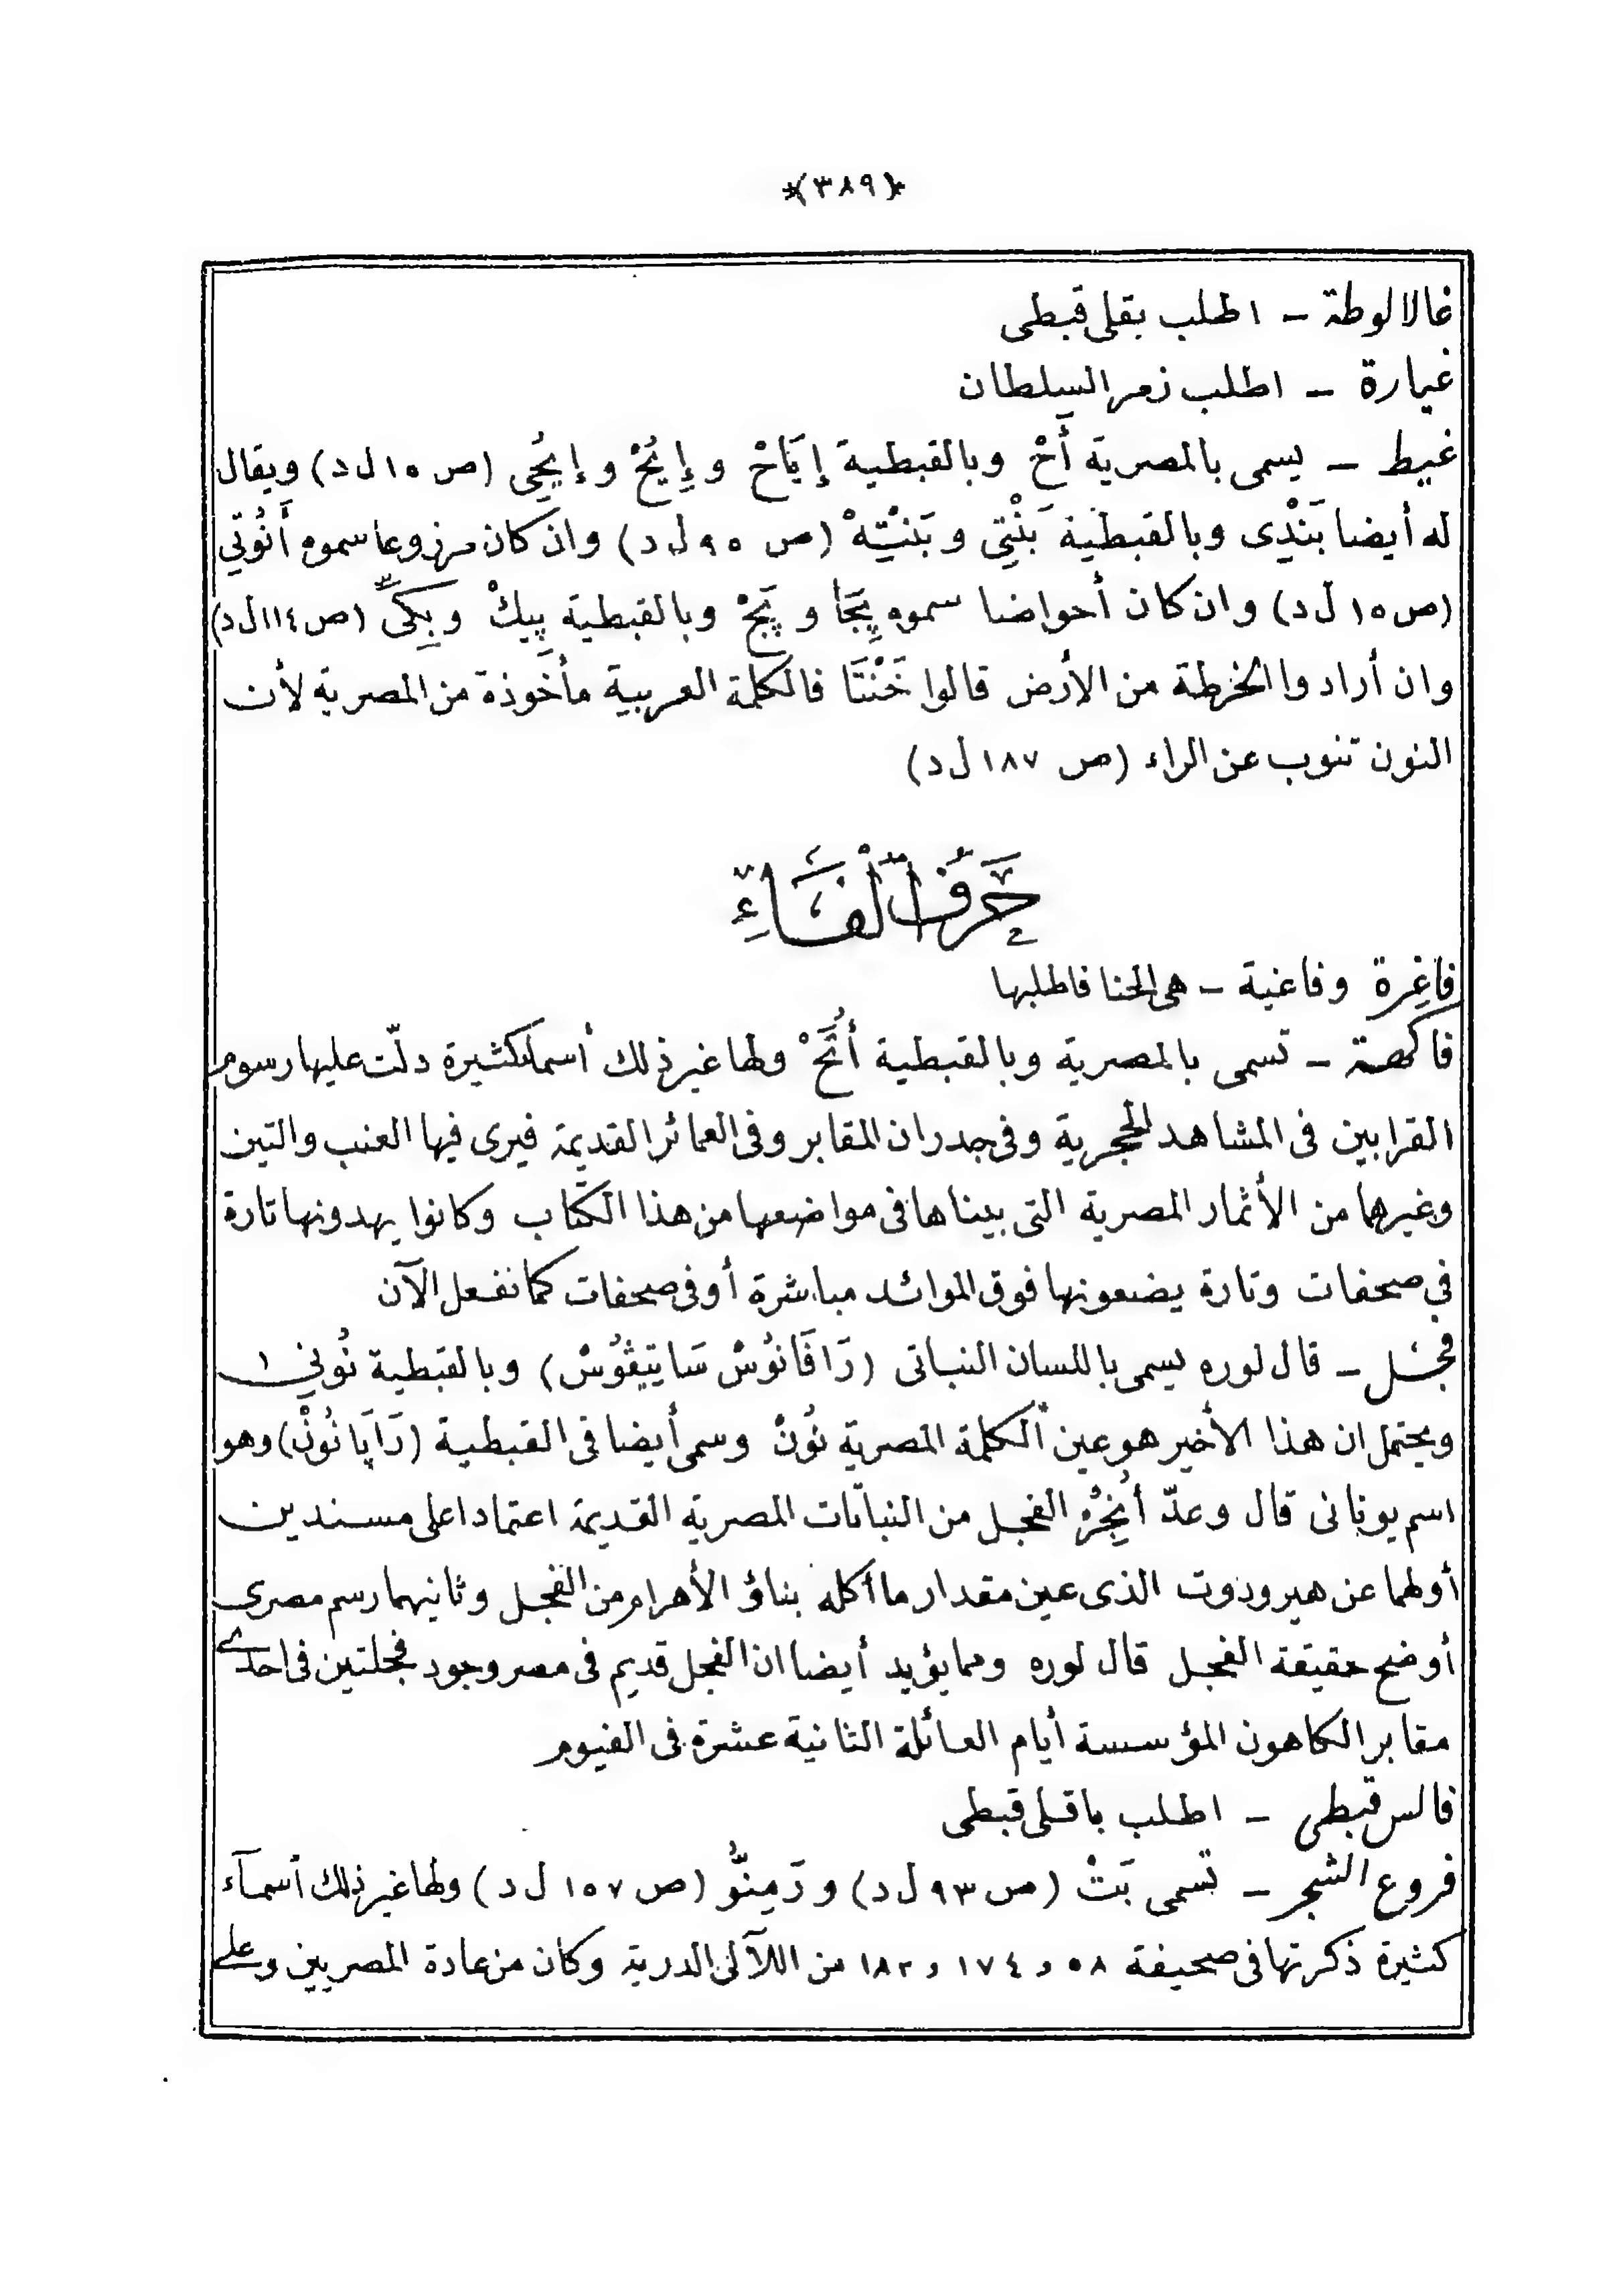 ﴿٣٨٩﴾
غالالوطة - اطلب بقلى قبطى
غيارة - اطلب زعر السلطان
غيط - يسمى بالمصرية أَحْ وبالقبطية إِيَاحْ و إِيُحْ و إيُحِى (ص ١٥ ل د) ويقال
له أيضا بَنْدِى وبالقبطية بَنْتِى و بَنْتِهْ (ص ٩٥ ل د) وان كان مزروعا سموه أَنُوتِي
(ص ١٥ ل د) وان كان أحواضا سموه بِجَا و بَجْ وبالقبطية بِيكْ و بِكَىّ (ص ١١٤ ل د)
وان أرادوا الخرطة من الأرض قالوا خَنْتَا فالكلمة العربية مأخوذة من المصرية لأن
النون تنوب عن الراء (ص ١٨٧ ل د)
حَرفُ الْفَاءِ
فاغِرة وفاغية - هى الحنا فاطلبها
فاكهة - تسمى بالمصرية وبالقبطية أُتَحْ ولها غير ذلك أسما كثيرة دلّت عليها رسوم
القرابين فى المشاهد الحجرية وفى جدران المقابر وفى العمائر القديمة فيرى فيها العنب والتين
وغيرهما من الأثمار المصرية التى بيناها فى مواضعها من هذا الكتاب وكانوا يهدونها تارة
في صحفات وتارة يضعونها فوق الموائد مباشرة أو فى صحفات كما نفعل الآن
فجل - قال لوره يسمى باللسان النباتى (رَافَانُوسْ سَاتِيڤُوسْ) وبالقبطية نُونِي
ويحتمل ان هذا الأخير هو عين الكلمة المصرية نُونْ وسمى أيضا فى القبطية (رَاپَانُونْ) وهو
اسم يونانى قال وعدّ أُنْجِرْ الفجل من النباتات المصرية القديمة اعتمادا على مسندين
أولهما عن هيرودوت الذى عين مقدار ما أكله بناؤ الأهرام من الفجل وثانيهما رسم مصرى
أوضح حقيقة الفجل قال لوره ومما يؤيد أيضا ان الفجل قديم فى مصر وجود فجلتين فى احدى
مقابر الكاهون المؤسسة أيام العائلة الثانية عشرة فى الفيوم
فالس قبطى - اطلب باقلى قبطى
فروع الشجر - تسمى بَتْ (ص ٩٣ ل د) و رَمِنُّو (ص ١٥٧ ل د) ولها غير ذلك أسمآء
كثيرة ذكرتها فى صحيفة ٥٨ و ١٧٤ و ١٨٢ من اللآلئ الدرية وكان من عادة المصريين وعلى